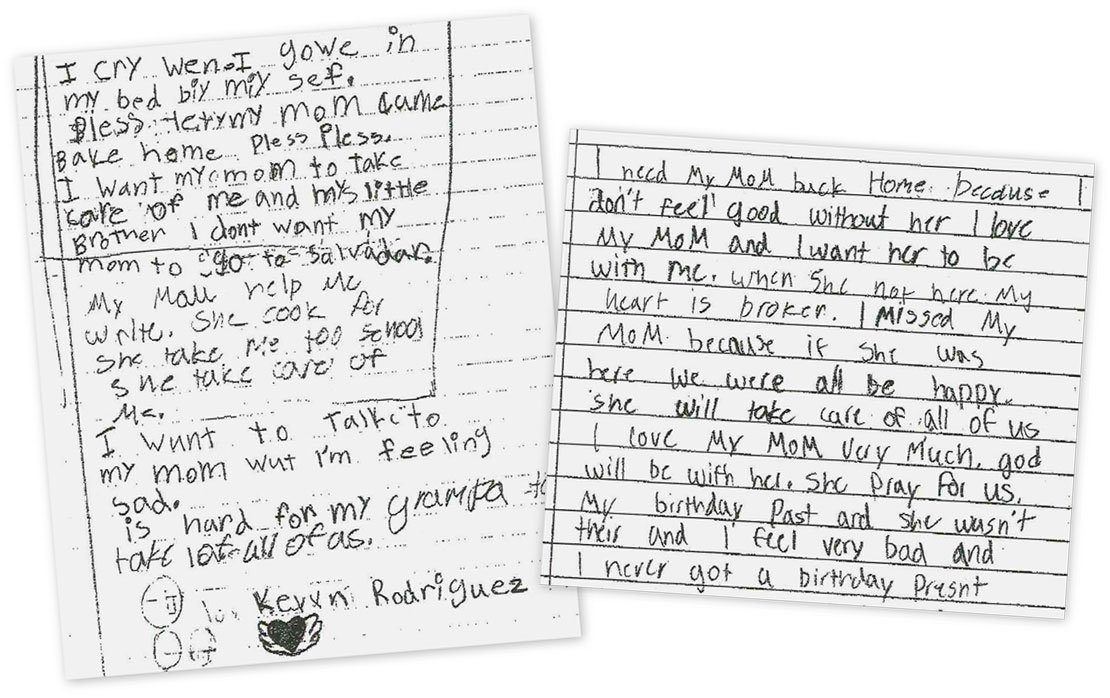 I cry wen I gowe in
my bed biy miy sef.
Pless my mom came
Bake home Pless Pless.
I want my mom to take
care of me and my little
Brother I dont want my
mom to go to Salvadar.
My Mom help Me
write. She cook for
she take Me too school
she take care of
Me.
I want to Talk to
my mom wut I'm feeling
sad.
is hard for my grampa to
take of all of as.
Kevyn Rodriguez
I need My MoM back Home because I
don't feel good without her I love
My MoM and I want her to be
with me. when she not here My
heart is broken. I Missed My
MoM because if she was
here we were all be happy.
she will take care of all of us
I love My MoM very Much. god
will be with her. She Pray for us.
My birthday Past and she wasn't
their and I feel very bad and
I never got a birthday Presnt